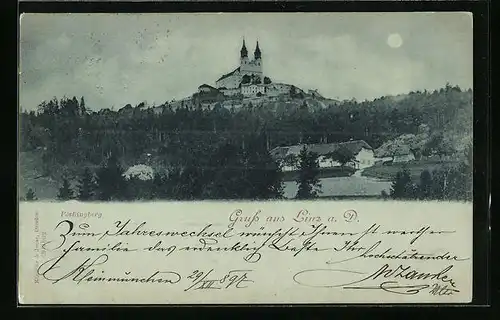 Pöstlingberg
Gruß aus Linz a. D.
Zum Jahreswechsel wünscht Ihnen st werther
Familie das erdenklich Beste Ihr
hochschätzender
Kleinmünchen 29/XII 897